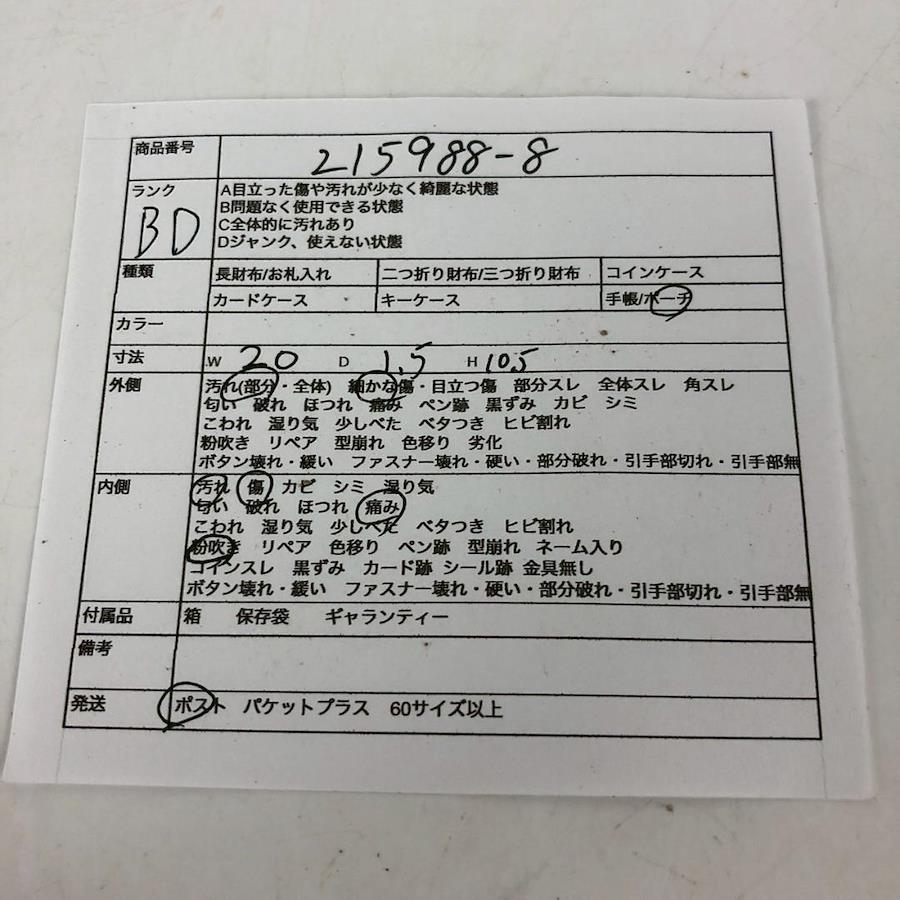 商品番号 215988-8
ランク BD
A目立った傷や汚れが少なく綺麗な状態
B問題なく使用できる状態
C全体的に汚れあり
Dジャンク、使えない状態
種類 長財布/お札入れ 二つ折り財布/三つ折り財布 コインケース
カードケース キーケース 手帳/ポーチ
カラー
寸法 W 20 D 1.5 H 10.5
外側 汚れ(部分・全体) 細かな傷・目立つ傷 部分スレ 全体スレ 角スレ
匂い 破れ ほつれ 痛み ペン跡 黒ずみ カビ シミ
こわれ 湿り気 少しべた ベタつき ヒビ割れ
粉吹き リペア 型崩れ 色移り 劣化
ボタン壊れ・緩い ファスナー壊れ・硬い・部分破れ・引手部切れ・引手部無
内側 汚れ 傷 カビ シミ 湿り気
匂い 破れ ほつれ 痛み
こわれ 湿り気 少しべた ベタつき ヒビ割れ
粉吹き リペア 色移り ペン跡 型崩れ ネーム入り
コインスレ 黒ずみ カード跡 シール跡 金具無し
ボタン壊れ・緩い ファスナー壊れ・硬い・部分破れ・引手部切れ・引手部無
付属品 箱 保存袋 ギャランティー
備考
発送 ポスト パケットプラス 60サイズ以上